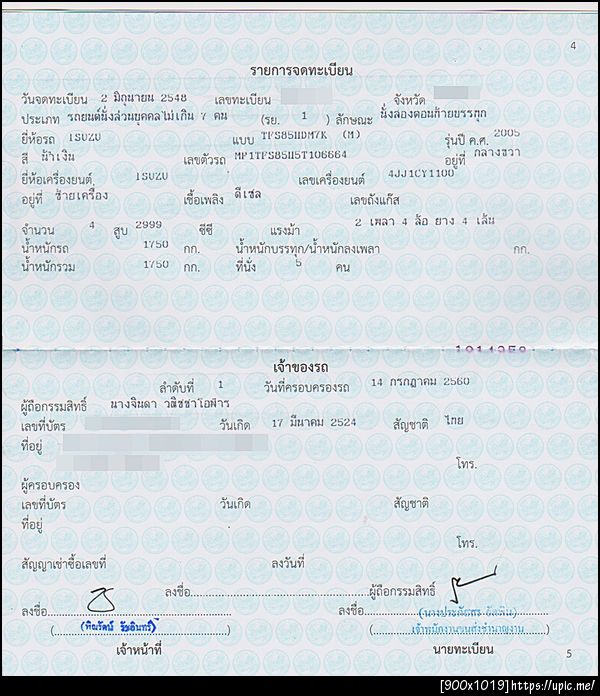 4
รายการจดทะเบียน
วันจดทะเบียน 2 มิถุนายน 2548 เลขทะเบียน จังหวัด
ประเภท รถยนต์นั่งส่วนบุคคลไม่เกิน 7 คน (รย. 1 ) ลักษณะ นั่งสองตอนท้ายบรรทุก
ยี่ห้อรถ ISUZU แบบ TFS85HDM7K (M) รุ่นปี ค.ศ. 2005
สี น้ำเงิน เลขตัวรถ MP1TFS85H5T106664 อยู่ที่ กลางขวา
ยี่ห้อเครื่องยนต์ ISUZU เลขเครื่องยนต์ 4JJ1CY1100
อยู่ที่ ซ้ายเครื่อง เชื้อเพลิง ดีเซล เลขถังแก๊ส
จำนวน 4 สูบ 2999 ซีซี แรงม้า 2 เพลา 4 ล้อ ยาง 4 เส้น
น้ำหนักรถ 1750 กก. น้ำหนักบรรทุก/น้ำหนักลงเพลา กก.
น้ำหนักรวม 1750 กก. ที่นั่ง 5 คน
เจ้าของรถ
ลำดับที่ 1 วันที่ครอบครองรถ 14 กรกฎาคม 2560
ผู้ถือกรรมสิทธิ์ นางจินดา วณิชชาโอฬาร
เลขที่บัตร วันเกิด 17 มีนาคม 2524 สัญชาติ ไทย
ที่อยู่
โทร.
ผู้ครอบครอง
เลขที่บัตร วันเกิด สัญชาติ
ที่อยู่
โทร.
สัญญาเช่าซื้อเลขที่ ลงวันที่
ลงชื่อ ผู้ถือกรรมสิทธิ์
ลงชื่อ ลงชื่อ
เจ้าพนักงานขนส่งชำนาญงาน
เจ้าหน้าที่ นายทะเบียน
5
[900x1019]https://upic.me/